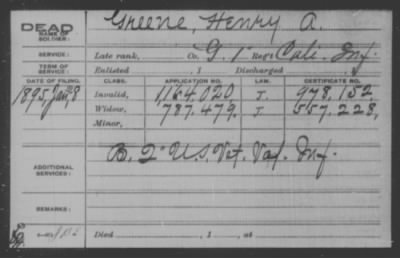 DEAD Greene, Henry A.
NAME OF SOLDIER:
SERVICE: Late rank, Co. G. 1" Reg't Cal. Inf.
TERM OF SERVICE: Enlisted , 1 Discharged , 1
DATE OF FILING. CLASS. APPLICATION NO. LAW. CERTIFICATE NO.
1895, Jan, 8 Invalid, 1164,020 J. 978,152
Widow, 787,479. J. 557,228,
Minor,
B. 2" U.S. Vet. Vol. Inf.
ADDITIONAL SERVICES:
REMARKS:
Died , 1 , at